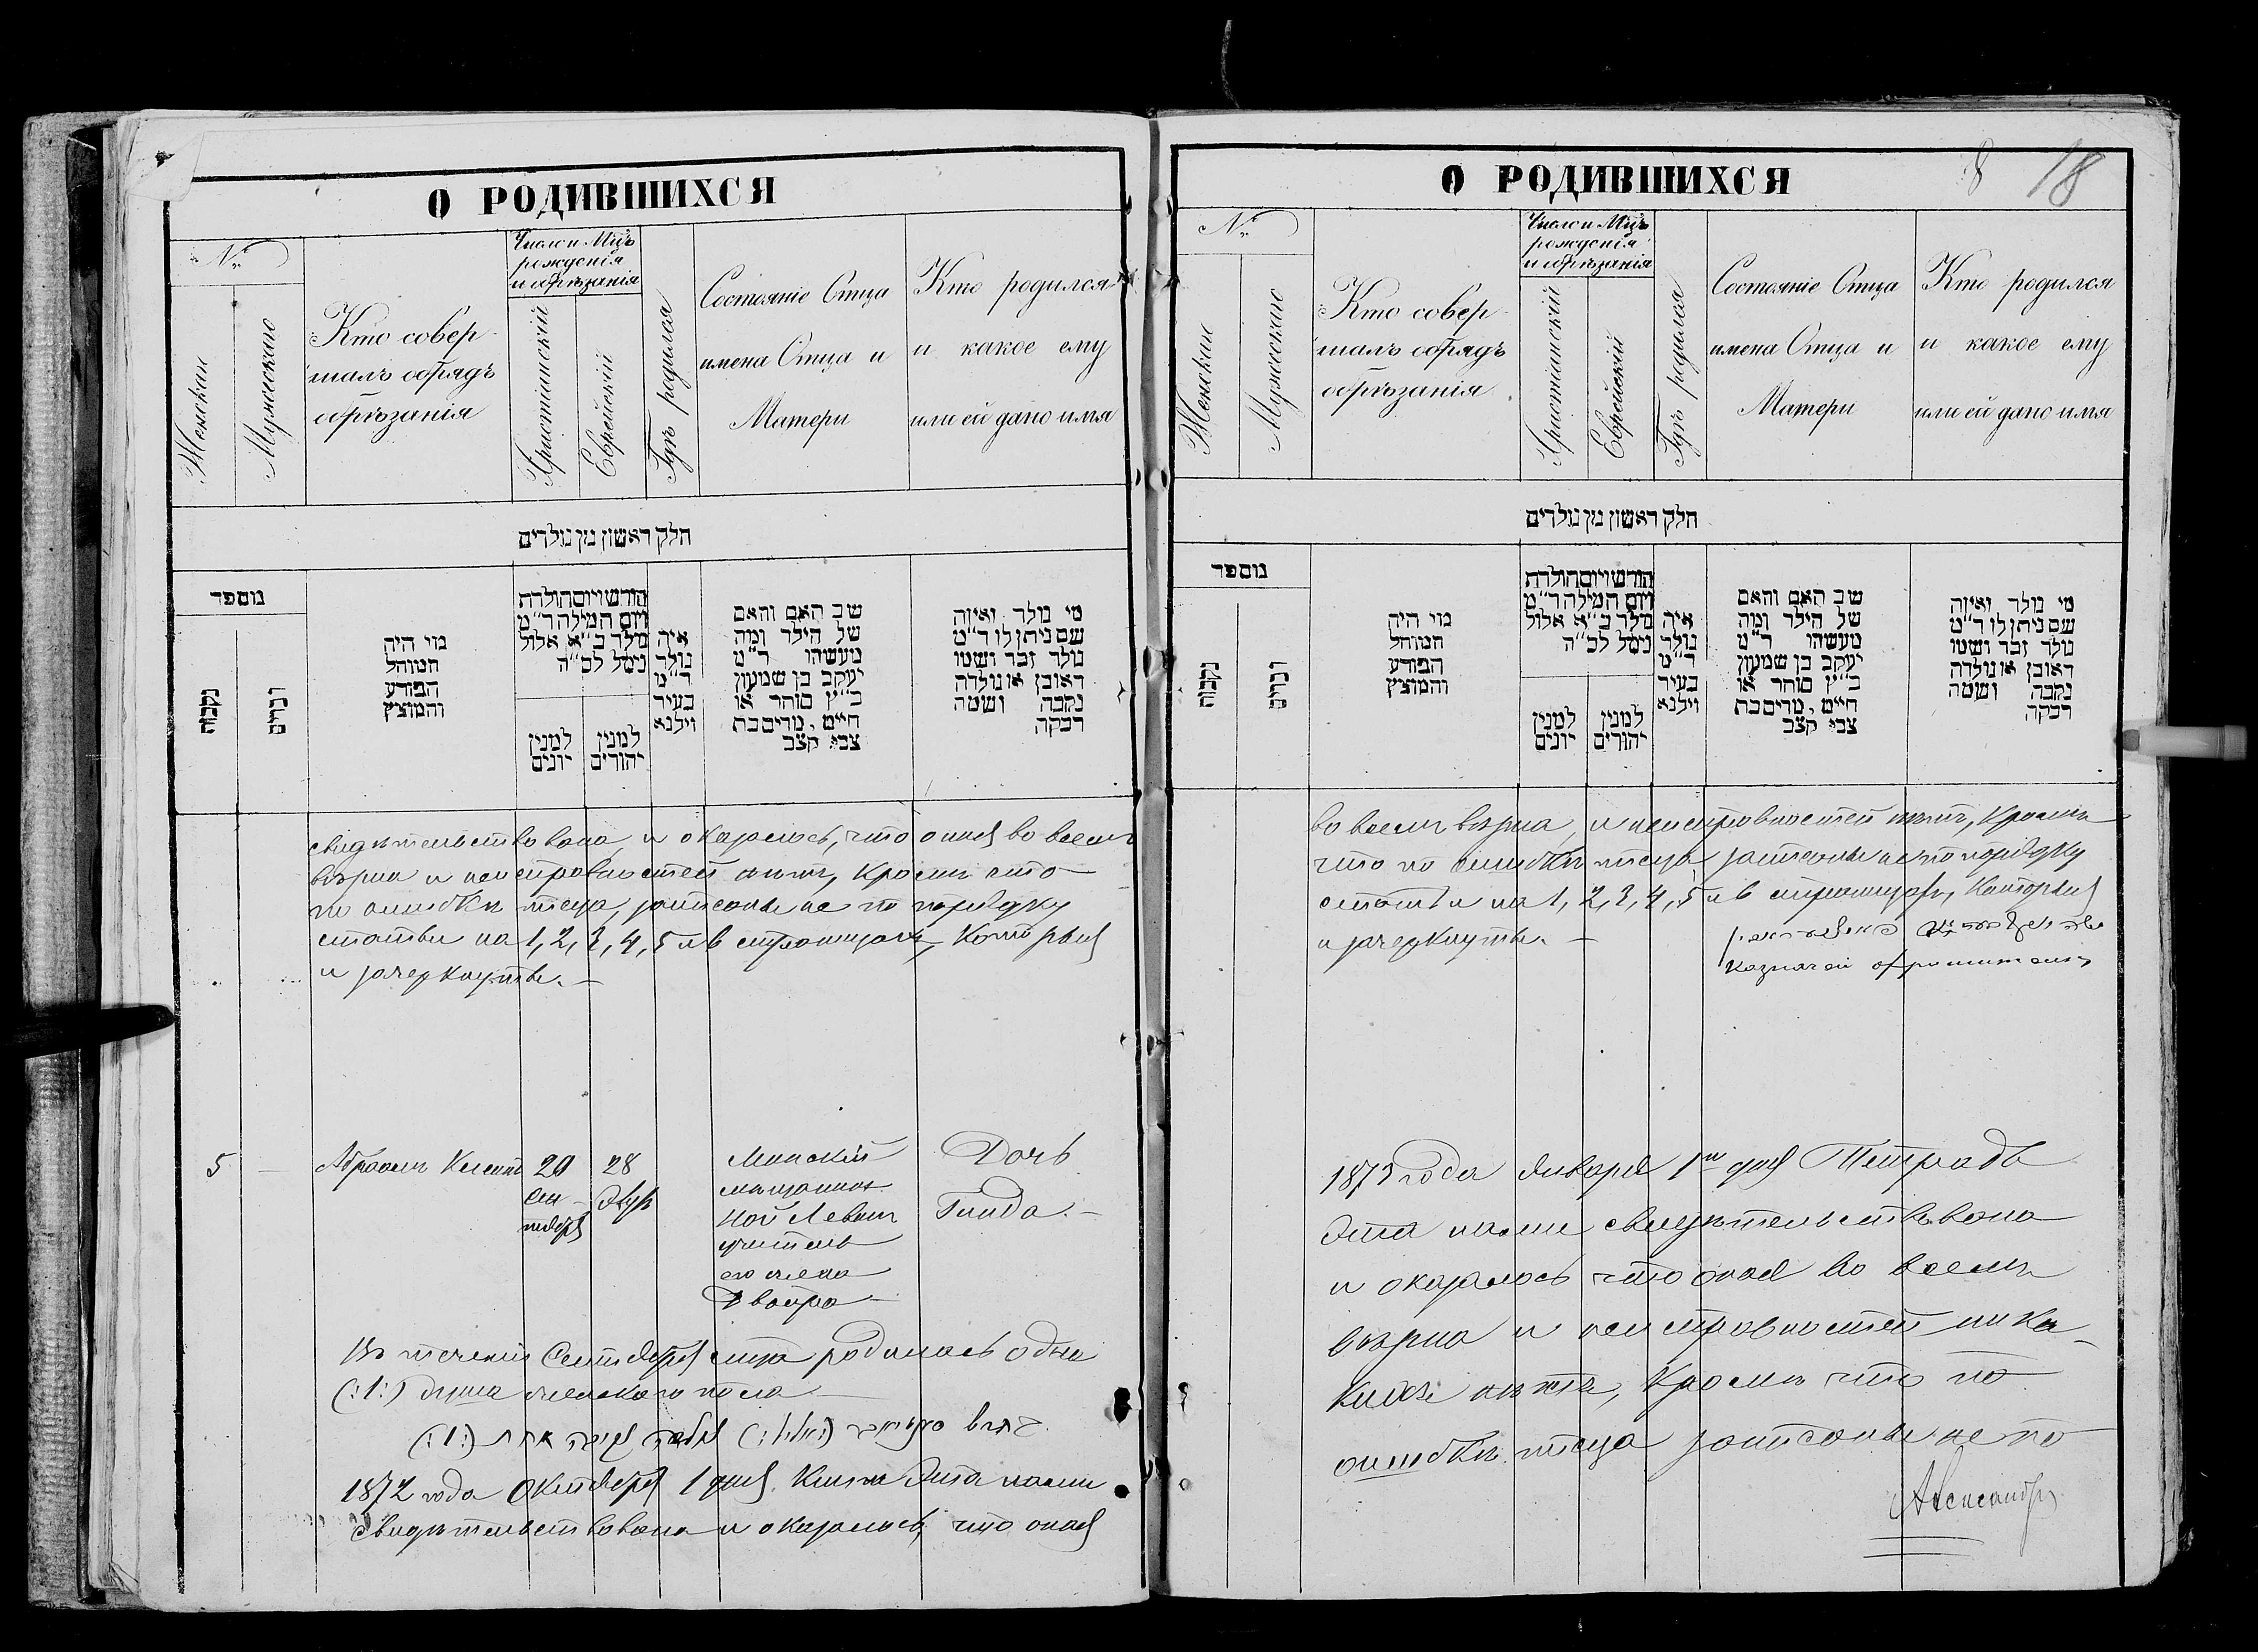 О РОДИВШИХСЯ
№
Женскаго
Мужескаго
Кто совер-
шалъ обрядъ
обрѣзанія
Число и Мцъ
рожденія
и обрѣзанія
Христіанскій
Еврейскій
Гдѣ родился
Состояніе Отца
имена Отца и
Матери
Кто родился
и какое ему
или ей дано имя
חלק ראשון מן נולדים
מספר
נקבות
זכרים
מי היה
המוהל
הפורע
והמוצץ
חודש ויום הולדת
ויום המילה ר"מ
נולד כ"א אלול
נימל לכ"ה
למנין
יונים
למנין
יהודים
איה
נולד
ר"מ
בעיר
וילנא
שב האם והאם
של הילד ומה
מעשהו ר"מ
יעקב בן שמעון
כ"ץ סוחר או
חיים, מרים בת
צבי קצב
מי נולד ואיזה
שם ניתן לו ר"מ
נולד זכר ושמו
ראובן או נולדה
נקבה ושמה
רבקה
свидѣтельствована и оказалось, что оная во всемъ
вѣрна и неисправностей нѣтъ, кромѣ что
по ошибкѣ писца, записаны не по порядку
статьи на 1, 2, 3, 4, 5 и 6 страницахъ, которыя
и зачеркнуты. —
5
—
Абрамъ
20
Сен-
тября
28
Элул
Минскій
мѣщанин
Левин
учитель
его жена
Двойра
Дочь
Гинда. —
Въ теченіи Сентября мца родилась одна
(:1:) душа женскаго пола
1872 года Октября 1 дня. Книга эта нами
свидѣтельствована и оказалось, что оная
О РОДИВШИХСЯ
8
18
№
Женскаго
Мужескаго
Кто совер-
шалъ обрядъ
обрѣзанія
Число и Мцъ
рожденія
и обрѣзанія
Христіанскій
Еврейскій
Гдѣ родился
Состояніе Отца
имена Отца и
Матери
Кто родился
и какое ему
или ей дано имя
חלק ראשון מן נולדים
מספר
נקבות
זכרים
מי היה
המוהל
הפורע
והמוצץ
חודש ויום הולדת
ויום המילה ר"מ
נולד כ"א אלול
נימל לכ"ה
למנין
יונים
למנין
יהודים
איה
נולד
ר"מ
בעיר
וילנא
שב האם והאם
של הילד ומה
מעשהו ר"מ
יעקב בן שמעון
כ"ץ סוחר או
חיים, מרים בת
צבי קצב
מי נולד ואיזה
שם ניתן לו ר"מ
נולד זכר ושמו
ראובן או נולדה
נקבה ושמה
רבקה
во всемъ вѣрна, и неисправностей нѣтъ, кромѣ
что по ошибкѣ писца записаны не по порядку
статьи на 1, 2, 3, 4, 5 и 6 страницахъ, которыя
и зачеркнуты. —
Казначей
1873 года Января 1го дня Тетрадь
эта нами свидѣтельствована
и оказалось что оная во всемъ
вѣрна и неисправностей ника-
кихъ нѣтъ, кромѣ что по
ошибкѣ писца записаны не по